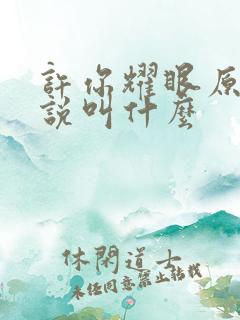 許你耀眼原
說叫什麼
休閑道士
未任同意禁止轉載